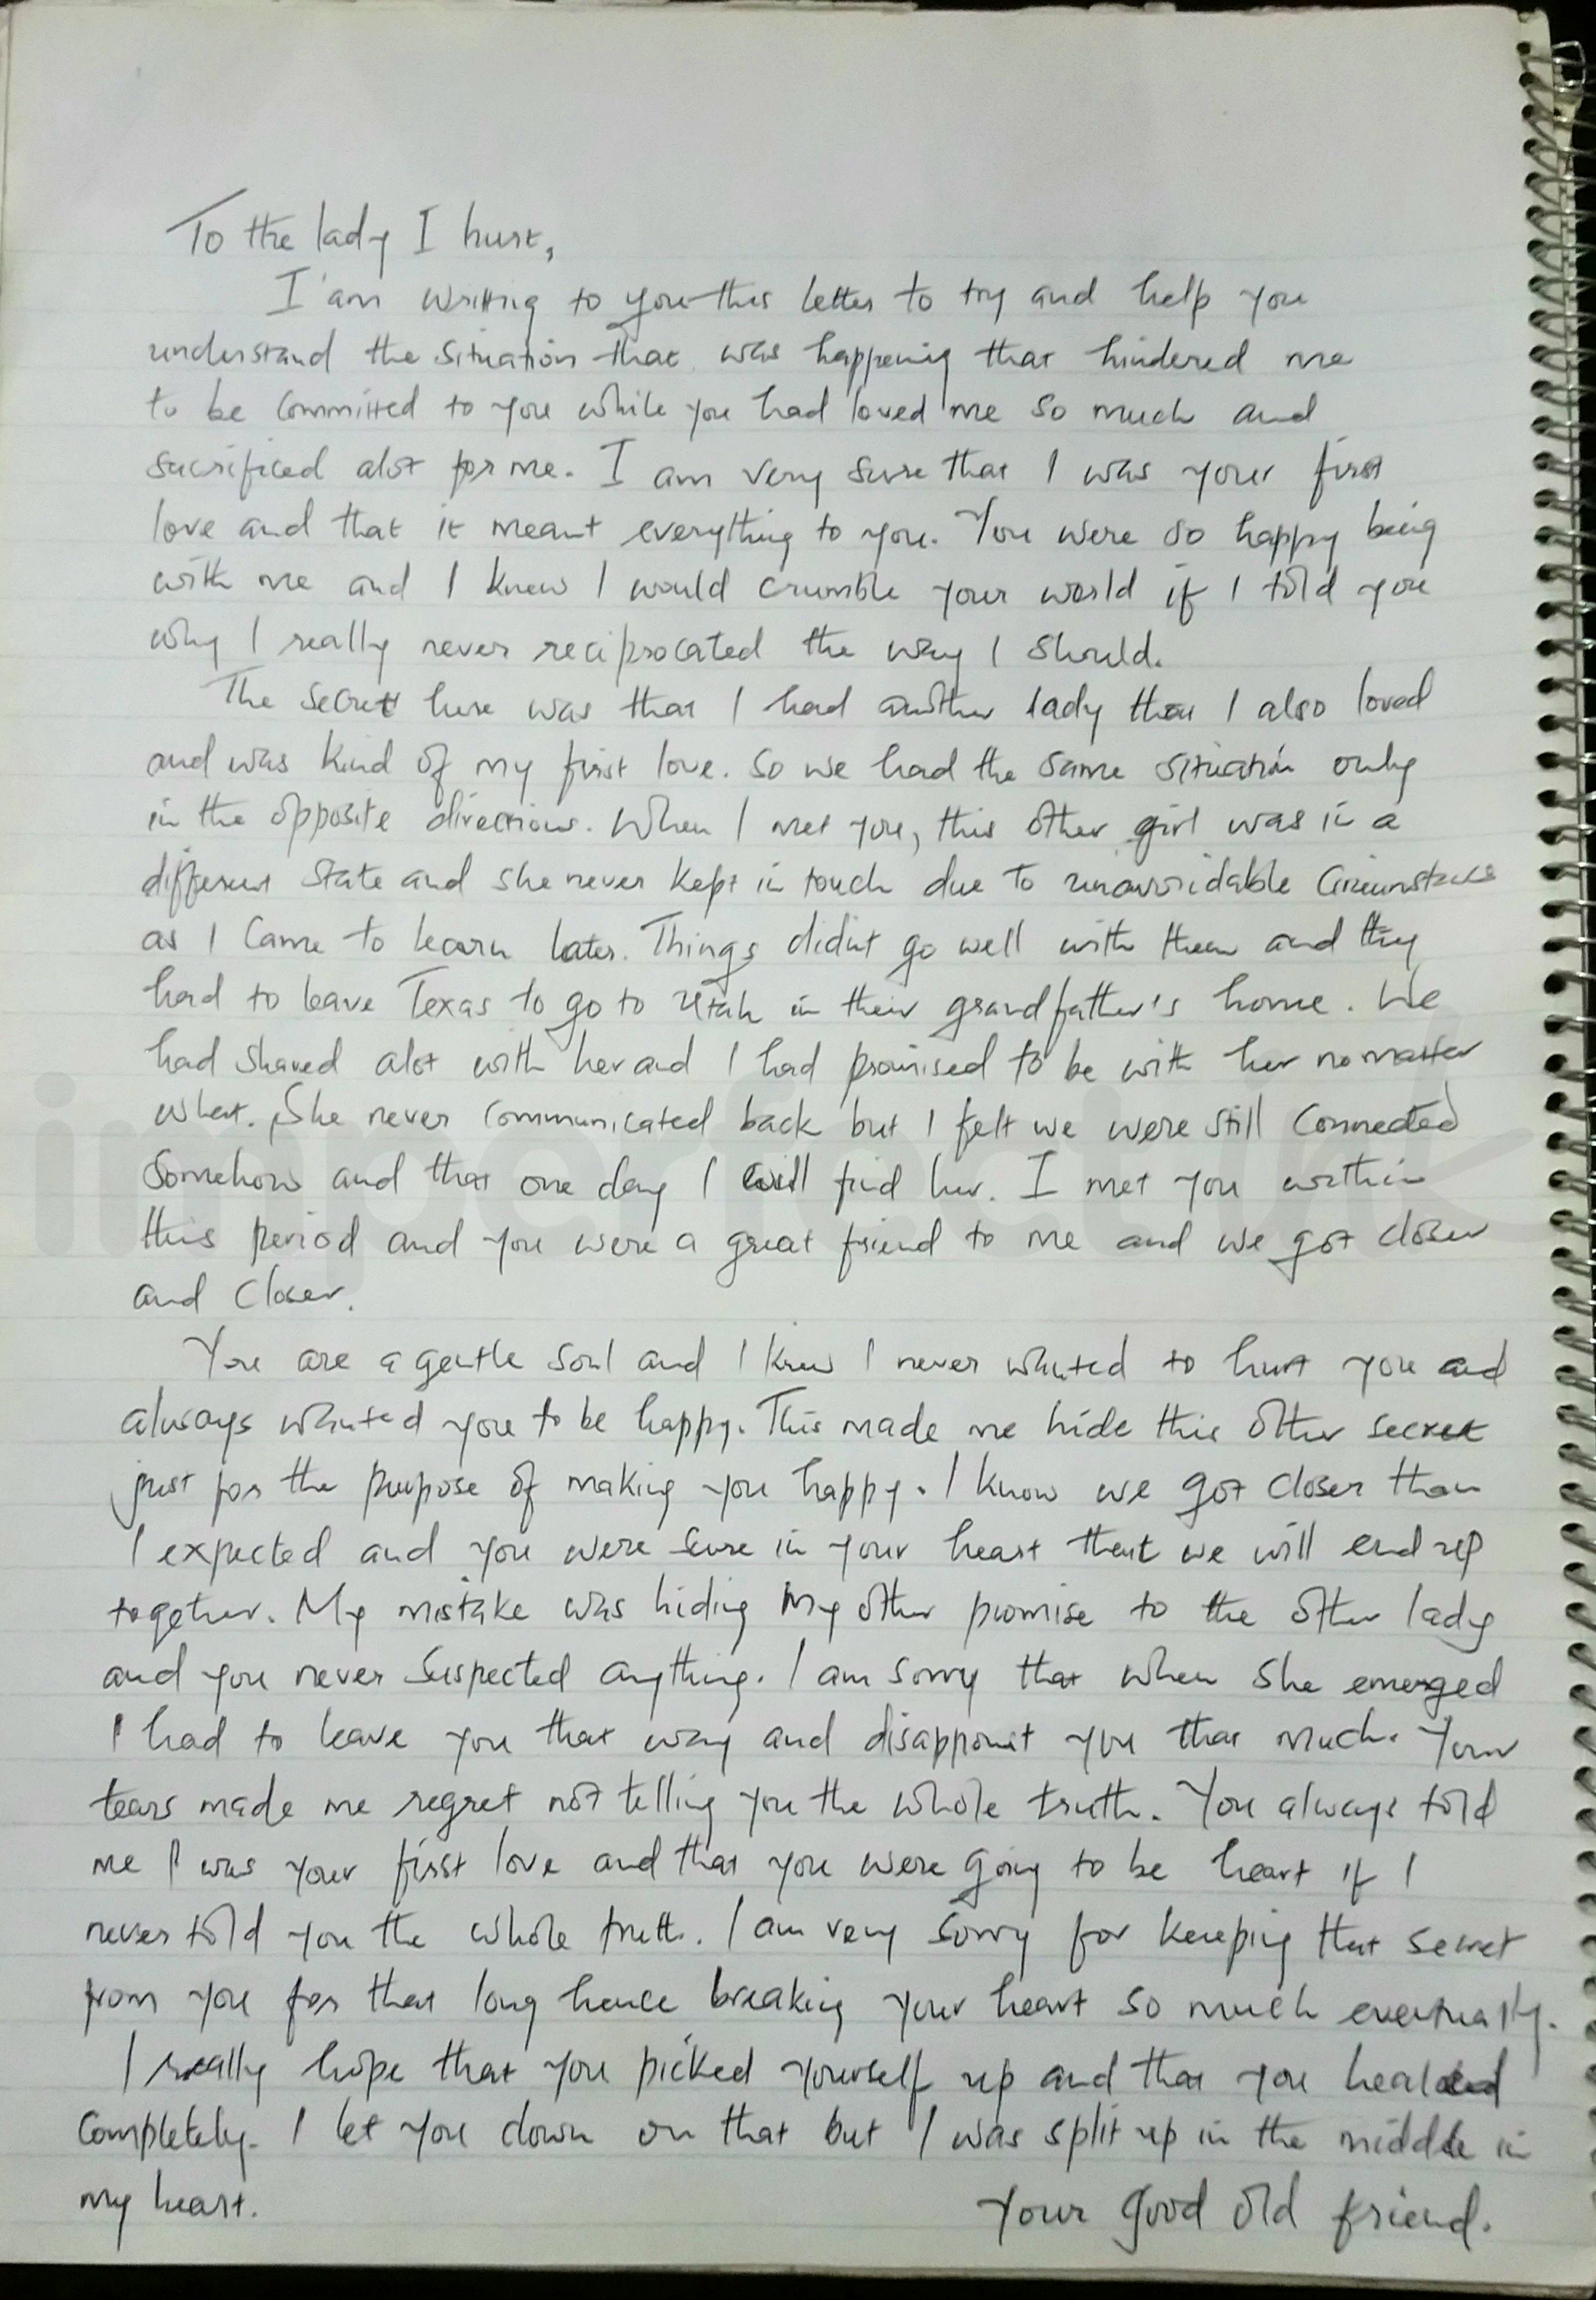 To the lady I hurt,
I am writting to you this letter to try and help you
understand the situation that was happening that hindered me
to be committed to you while you had loved me so much and
sacrificed alot for me. I am very sure that I was your first
love and that it meant everything to you. You were so happy being
with me and I knew I would crumble your world if I told you
why I really never reciprocated the way I should.
The secret here was that I had another lady that I also loved
and was kind of my first love. So we had the same situation only
in the opposite directions. When I met you, this other girl was in a
different state and she never kept in touch due to unavoidable
as I came to learn later. Things didnt go well with them and they
had to leave Texas to go to Utah in their grandfather's home. We
had shared alot with her and I had promised to be with her no matter
what. She never communicated back but I felt we were still connected
somehow and that one day I will find her. I met you within
this period and you were a great friend to me and we got closer
and closer.
You are a gentle soul and I knew I never wanted to hurt you and
always wanted you to be happy. This made me hide this other secret
just for the purpose of making you happy. I know we got closer than
I expected and you were sure in your heart that we will end up
together. My mistake was hiding my other promise to the other lady
and you never suspected anything. I am sorry that when she emerged
I had to leave you that way and disappoint you that much. Your
tears made me regret not telling you the whole truth. You always told
me I was your first love and that you were going to be heart if I
never told you the whole truth. I am very sorry for keeping that secret
from you for that long hence breaking your heart so much eventually.
I really hope that you picked yourself up and that you healed
completely. I let you down on that but I was split up in the middle in
my heart.
Your good old friend.
imperfect ink